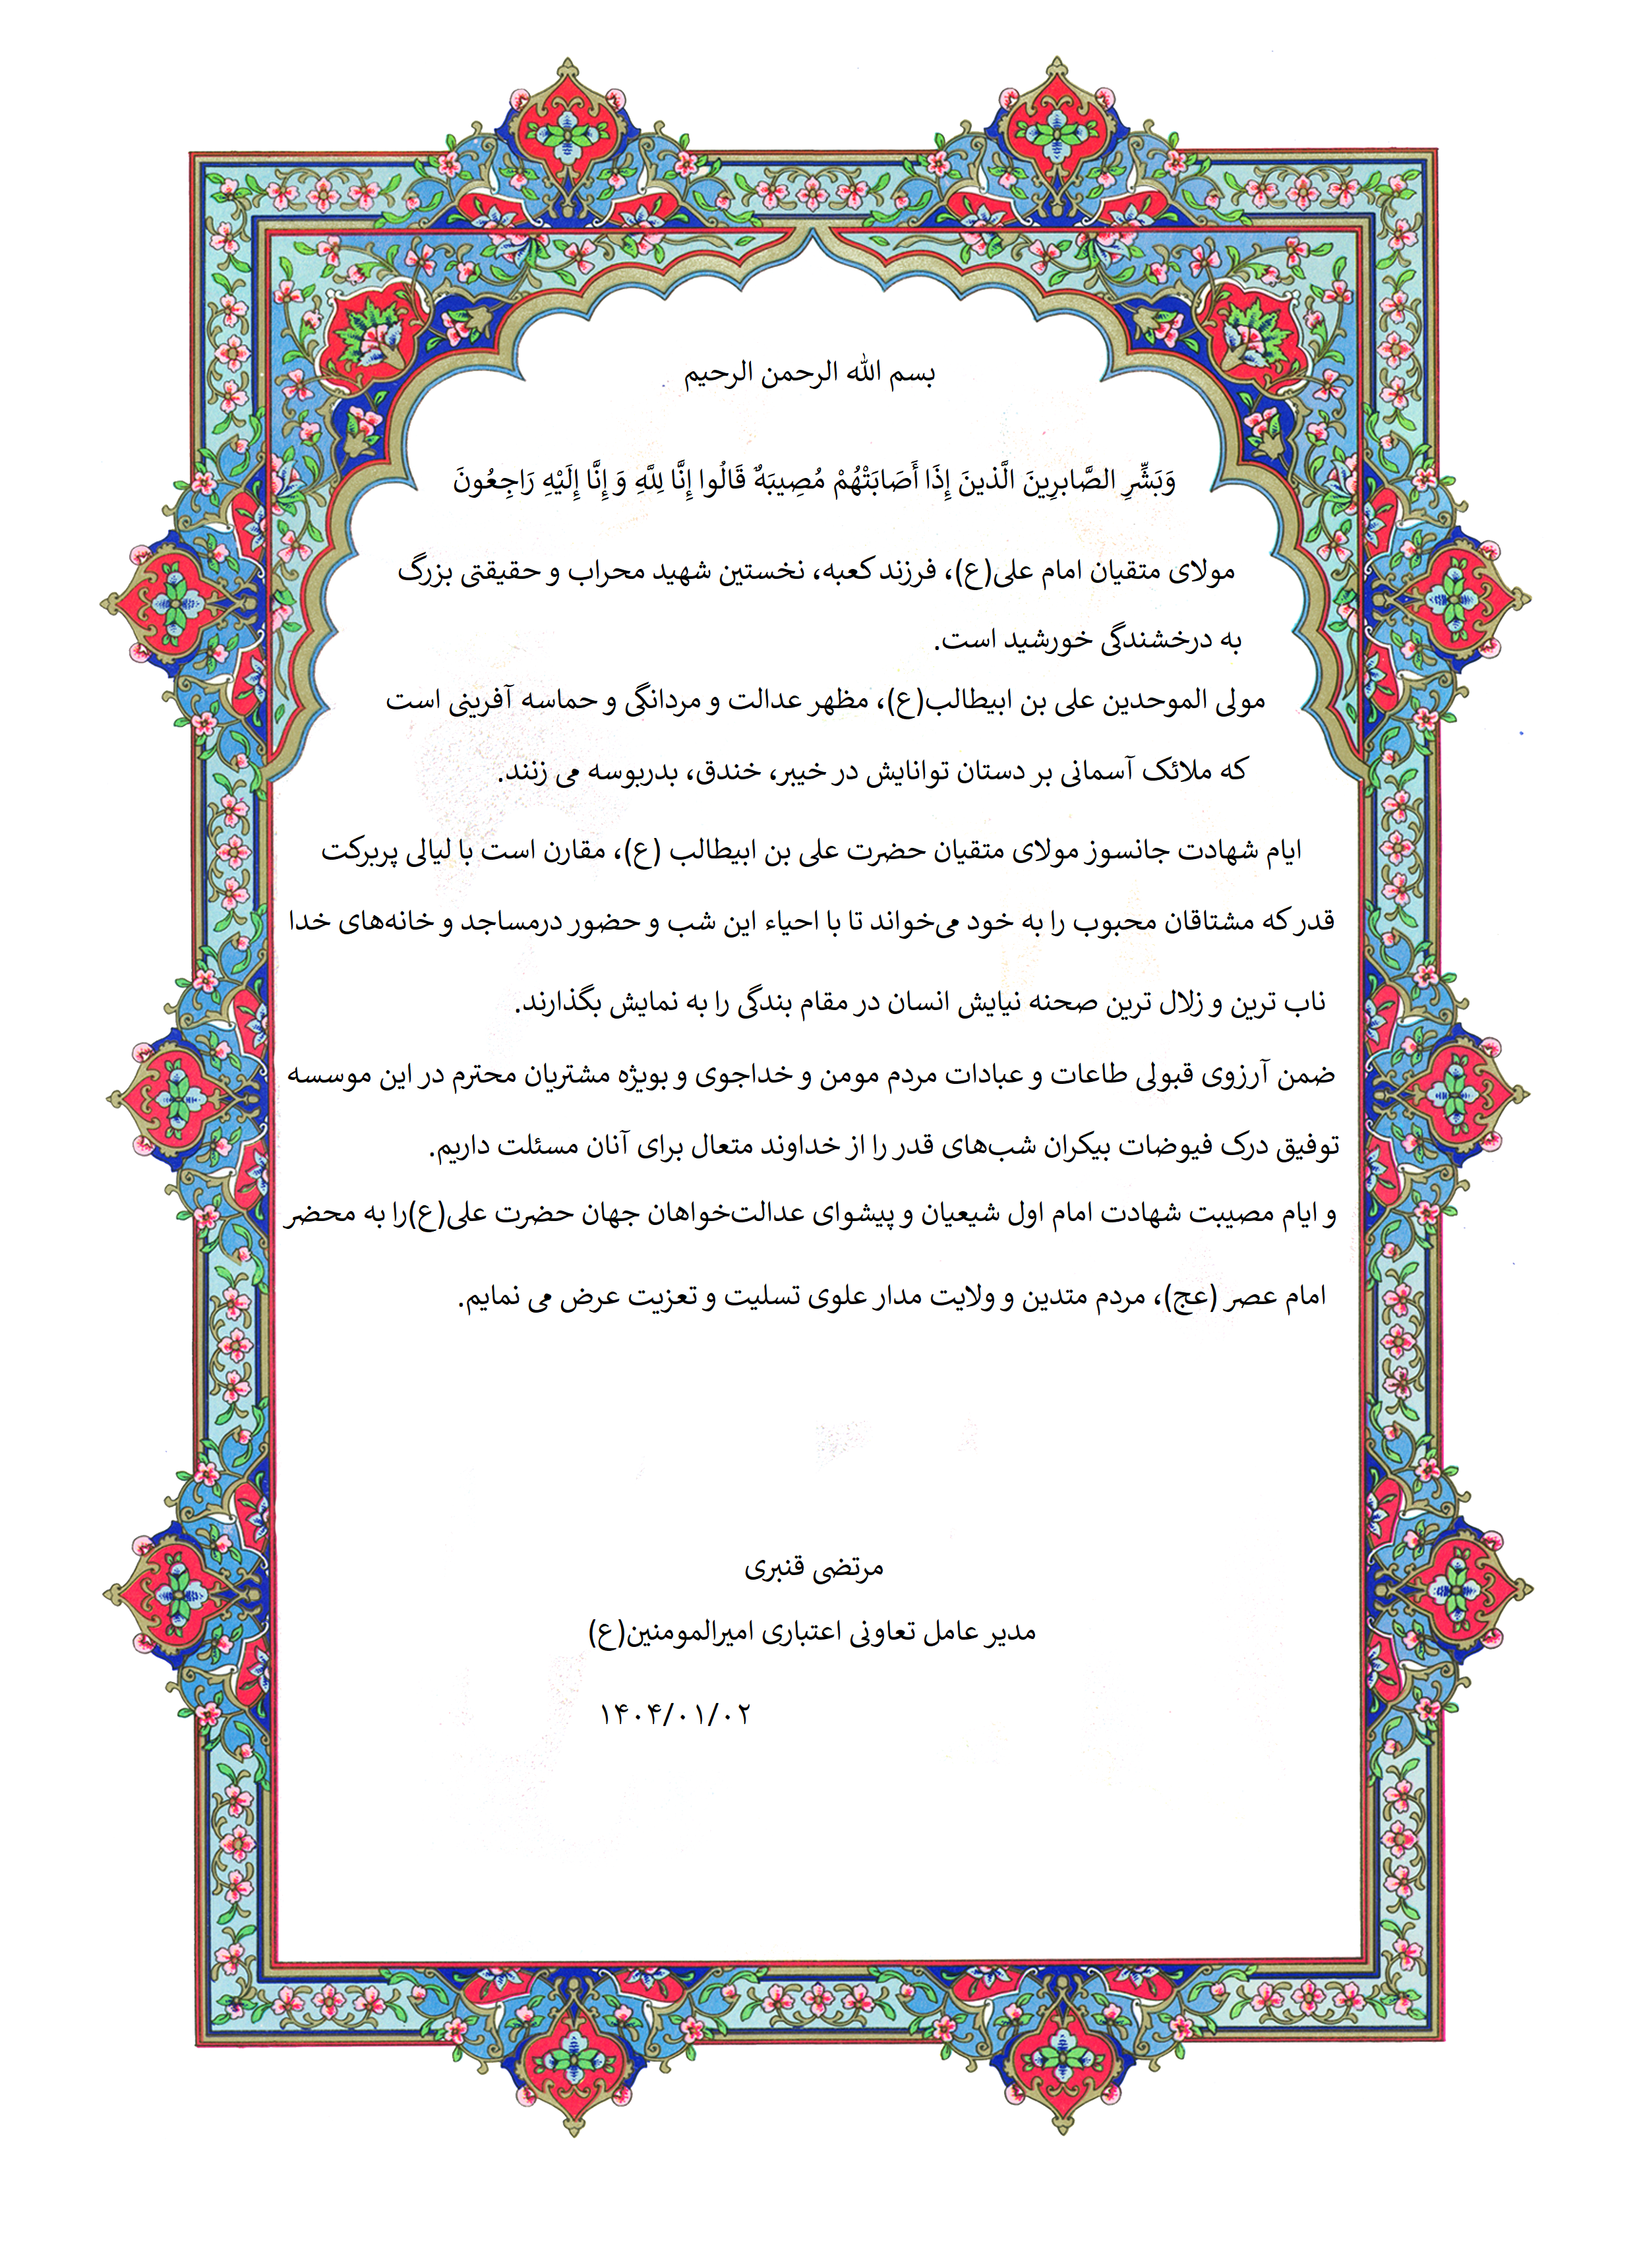 بسم الله الرحمن الرحیم
وَبَشِّرِ الصَّابرِینَ الَّذینَ إِذَا أَصَابَتْهُمْ مُصِیبَهٌ قَالُوا إِنَّا لِلَّهِ وَ إِنَّا إِلَیْهِ رَاجِعُونَ
مولای متقیان امام علی(ع)، فرزند کعبه، نخستین شهید محراب و حقیقتی بزرگ
به درخشندگی خورشید است.
مولی الموحدین علی بن ابیطالب(ع)، مظهر عدالت و مردانگی و حماسه آفرینی است
که ملائک آسمانی بر دستان توانایش در خیبر، خندق، بدربوسه می زنند.
ایام شهادت جانسوز مولای متقیان حضرت علی بن ابیطالب (ع)، مقارن است با لیالی پربرکت
قدر که مشتاقان محبوب را به خود می‌خواند تا با احیاء این شب و حضور درمساجد و خانه‌های خدا
ناب ترین و زلال ترین صحنه نیایش انسان در مقام بندگی را به نمایش بگذارند.
ضمن آرزوی قبولی طاعات و عبادات مردم مومن و خداجوی و بویژه مشتریان محترم در این موسسه
توفیق درک فیوضات بیکران شب‌های قدر را از خداوند متعال برای آنان مسئلت داریم.
و ایام مصیبت شهادت امام اول شیعیان و پیشوای عدالت‌خواهان جهان حضرت علی(ع)را به محضر
امام عصر (عج)، مردم متدین و ولایت مدار علوی تسلیت و تعزیت عرض می نمایم.
مرتضی قنبری
مدیر عامل تعاونی اعتباری امیرالمومنین(ع)
۱۴۰۴/۰۱/۰۲